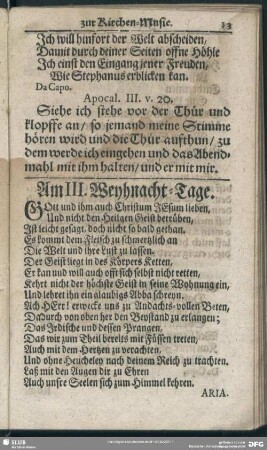 zur Kirchen-Music. 23
Ich will hinfort der Welt abscheiden,
Damit durch deiner Seiten offne Höhle
Ich einst den Eingang jener Freuden,
Wie Stephanus erblicken kan.
Da Capo.
Apocal. III. v. 20.
Siehe ich stehe vor der Thür und
klopffe an/ so jemand meine Stimme
hören wird und die Thür aufthun/ zu
dem werde ich eingehen und das Abend-
mahl mit ihm halten/ und er mit mir.
Am III. Weyhnacht-Tage.
GOtt und ihm auch Christum JEsum lieben,
Und nicht den Heilgen Geist betrüben,
Ist leicht gesagt, doch nicht so bald gethan.
Es kommt dem Fleisch zu schmertzlich an
Die Welt und ihre Lust zu lassen.
Der Geist liegt in des Körpers Ketten,
Er kan und will auch offt sich selbst nicht retten,
Kehrt nicht der höchste Geist in seine Wohnung ein,
Und lehret ihn ein gläubigs Abba schreyn.
Ach HErr! erwecke uns zu Andachts-vollen Beten,
Dadurch von oben her den Beystand zu erlangen;
Das Irdische und dessen Prangen,
Das wir zum Theil bereits mit Füssen treten,
Auch mit dem Hertzen zu verachten,
Und ohne Heucheley nach deinem Reich zu trachten.
Laß mit den Augen dir zu Ehren
Auch unsre Seelen sich zum Himmel kehren.
ARIA.
SLUB
DFG